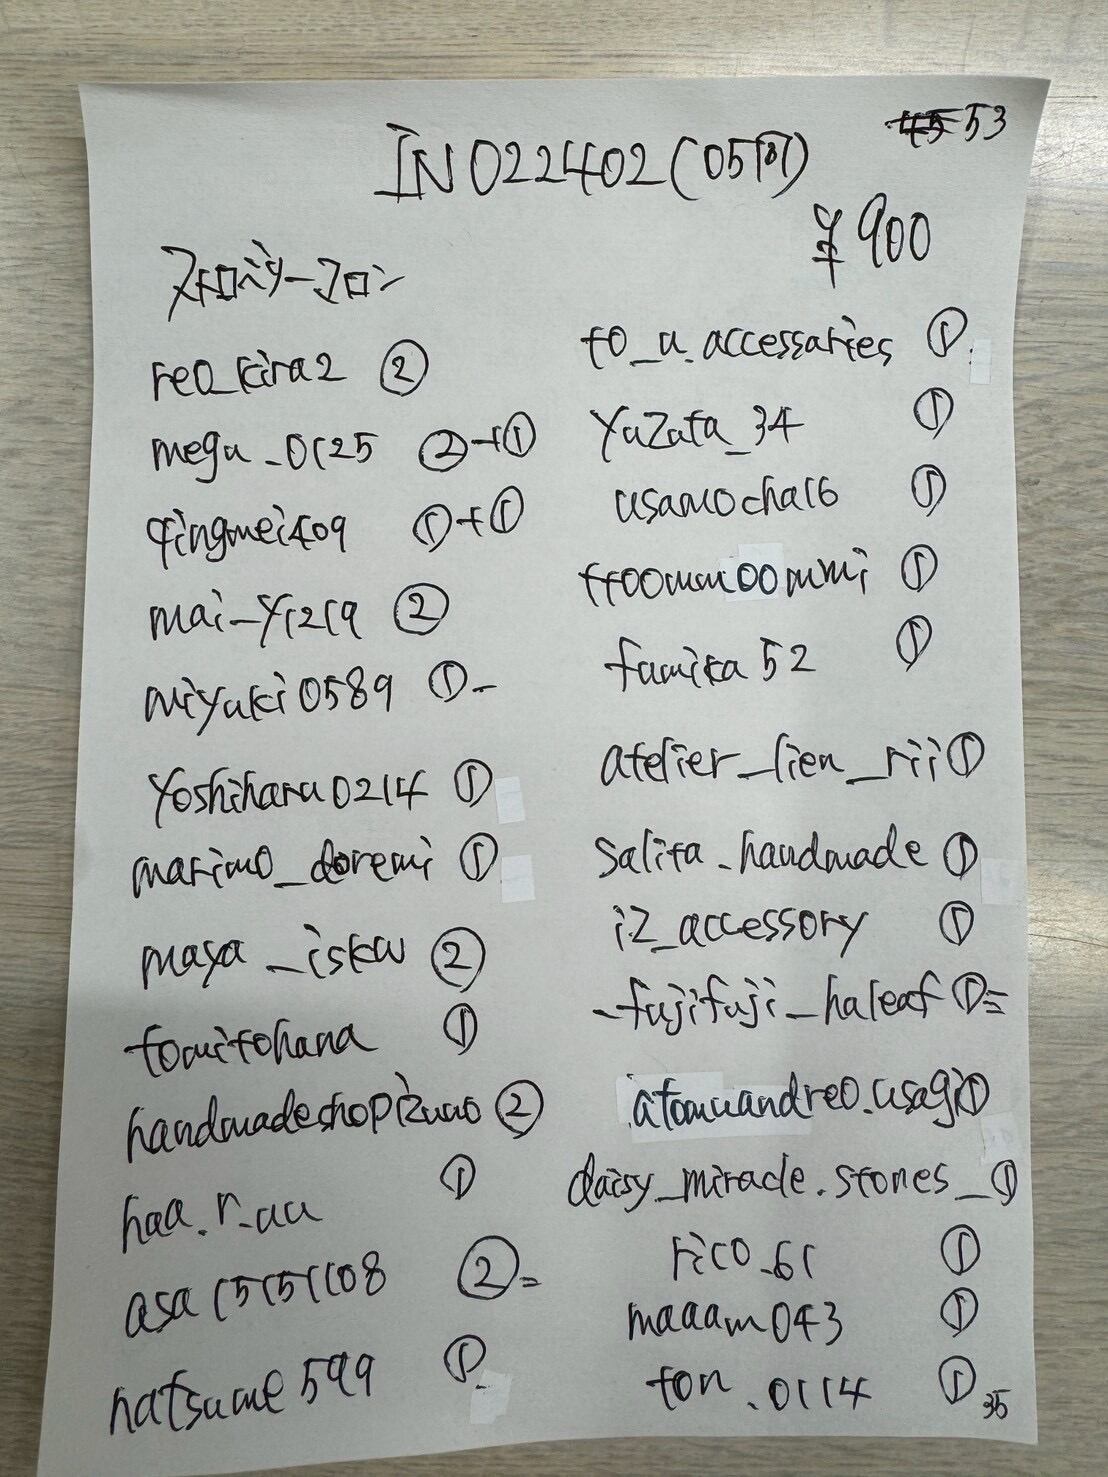 53
IN022402(05円)
¥900
ストロベリーマロン
reo_kira2 ②
megu_0125 ②+①
qingmei409 ①+①
mai_y1219 ②
miyuki0589 ①-
yoshiharu0214 ①
marimo_doremi ①
maya_isku ②
tomitohana ①
handmadeshopizumo ②
haa.r_uu ①
asa15151108 ②=
natsume599 ①-
to_u.accessaries ①
yuzuta_34 ①
usamocha16 ①
tt00mm00mmi ①
fumika52 ①
atelier_lien_rii ①
salita_handmade ①
iz_accessory ①
_fujifuji_haleaf ①=
atomuandreo.usagi ①
daisy_miracle.stones_ ①
rico_61 ①
maaam043 ①
ton.0114 ①
35